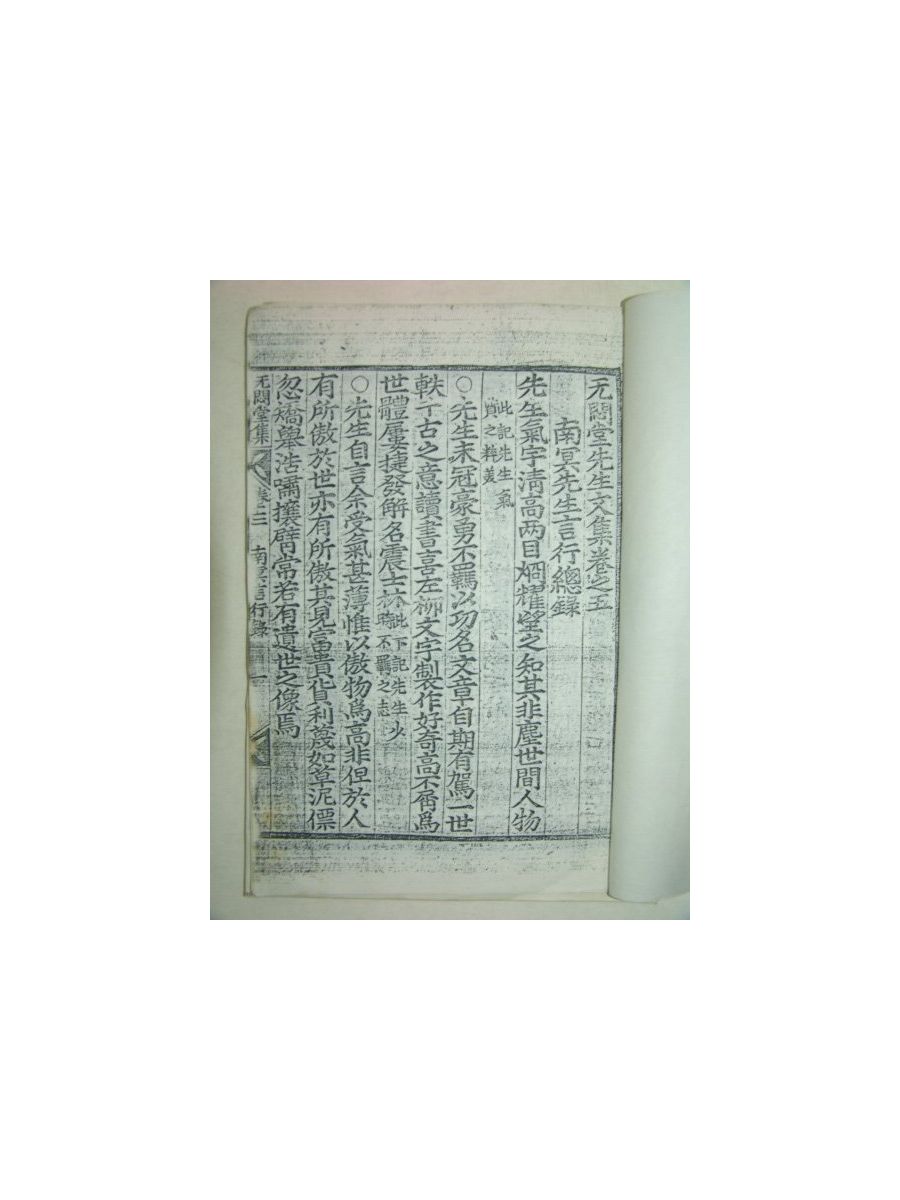 无悶堂先生文集卷之五
南冥先生言行總錄
先生氣宇淸高两目烱耀望之知其非塵世間人物
此記先生氣
質之粹美
○先生未冠豪勇不羈以功名文章自期有駕一世
軼千古之意讀書喜左柳文字製作好奇高不屑爲
世體屢捷發解名震士林此下記先生少
時不羈之志
○先生自言余受氣甚薄惟以傲物爲高非但於人
有所傲於世亦有所傲其見富貴貨利蔑如草泥僄
忽矯擧浩嘯攘臂常若有遺世之像焉
无悶堂集 卷之五 南冥言行錄 一